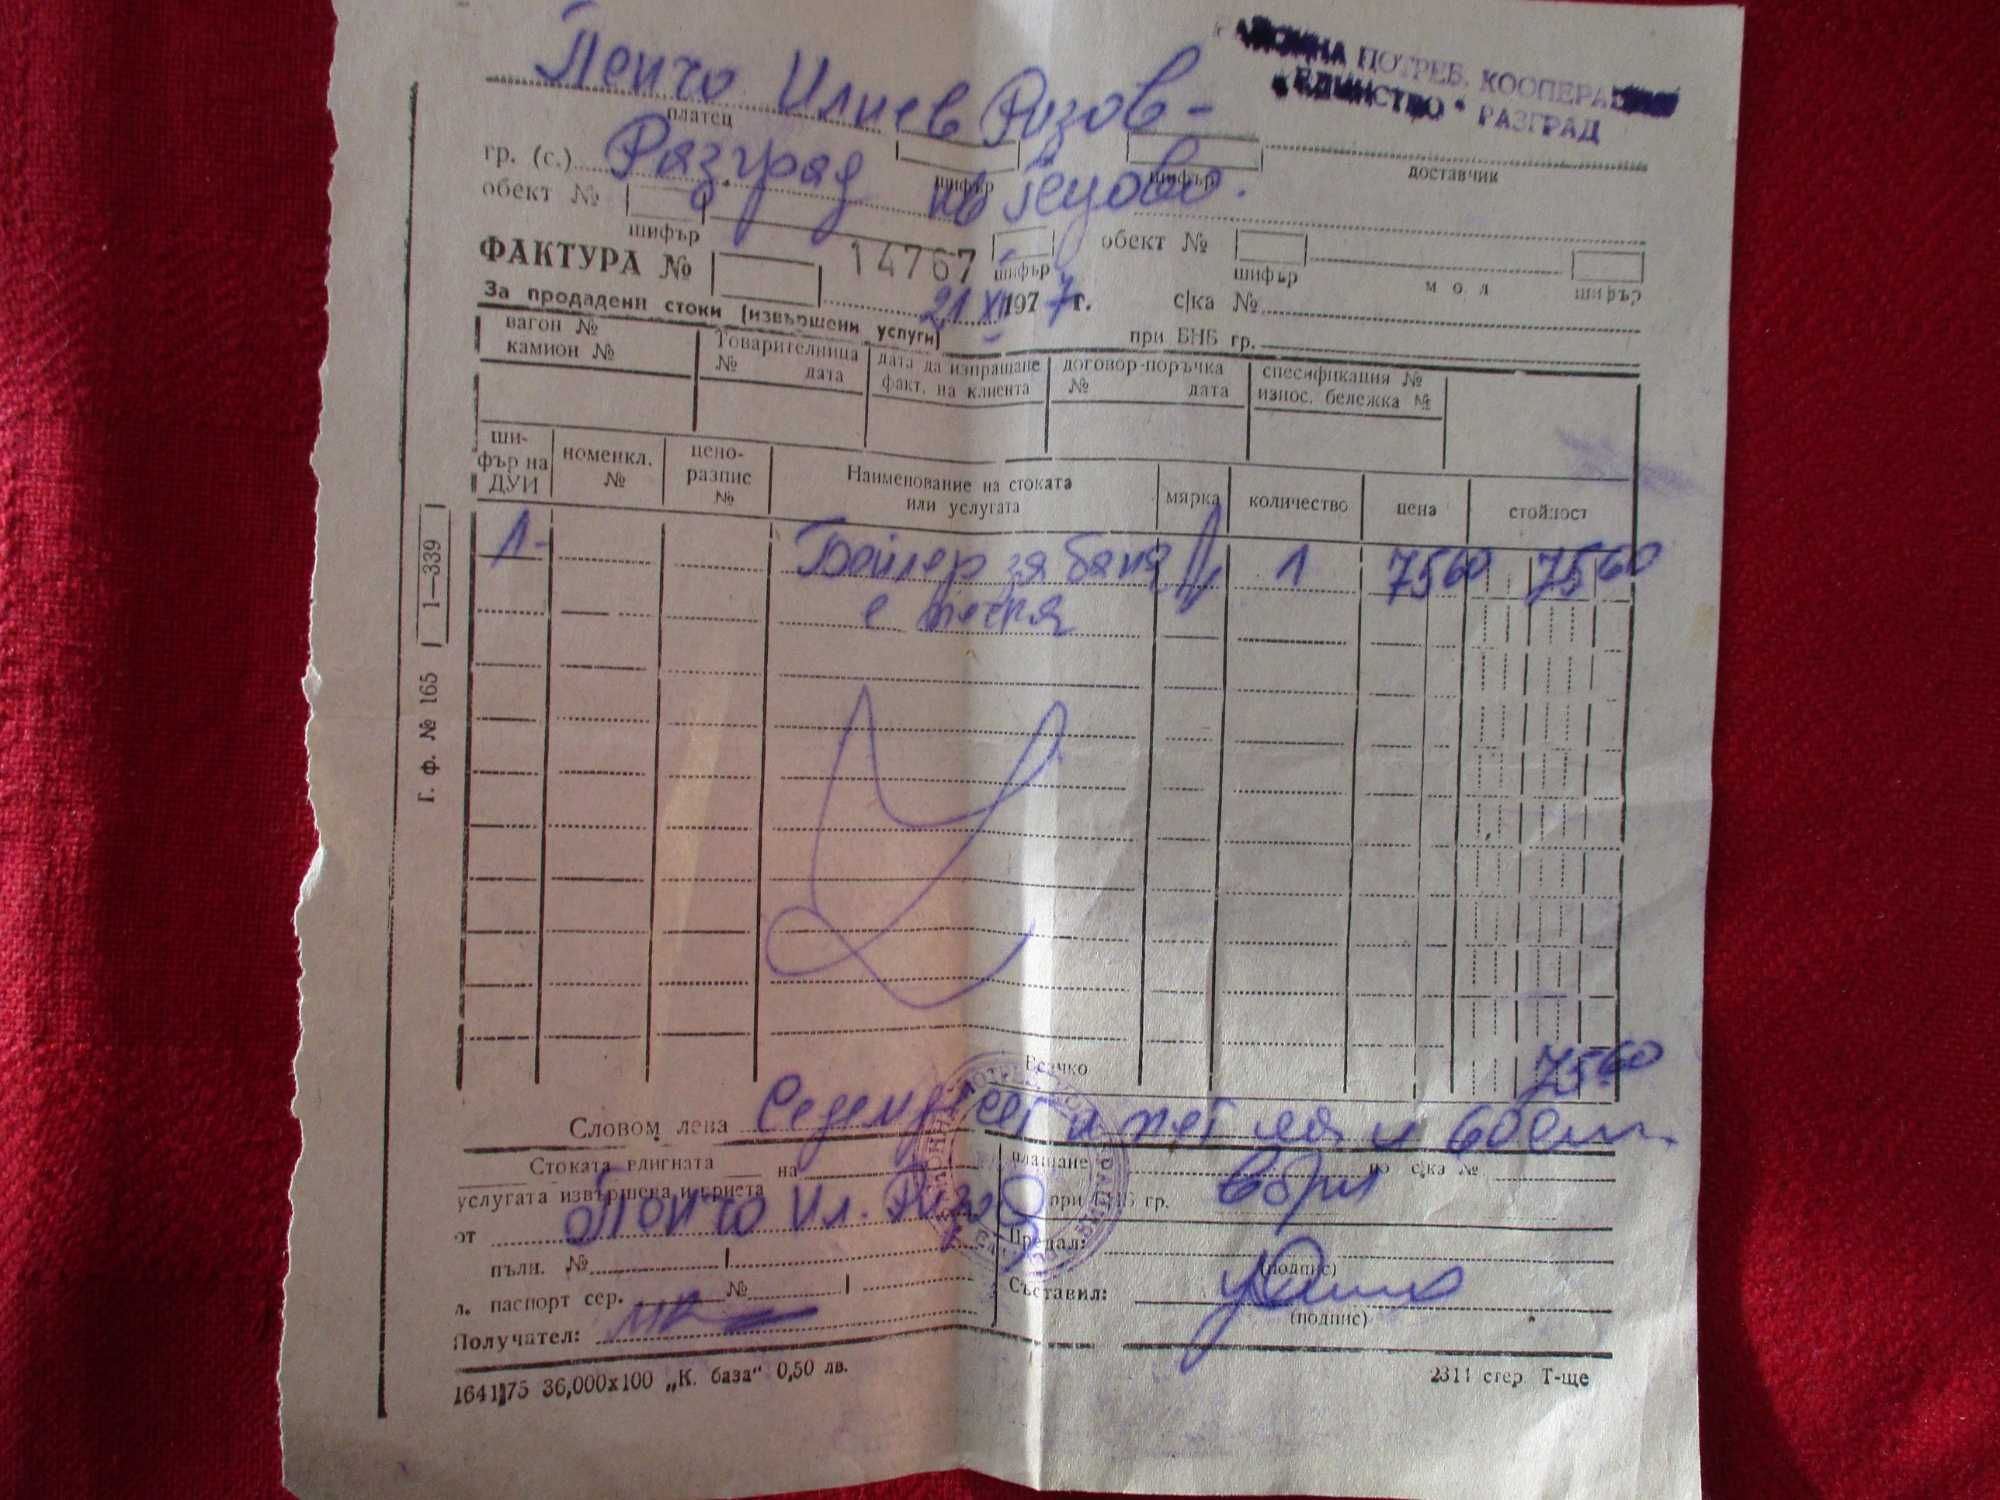 РАЙОННА ПОТРЕБ. КООПЕРАЦИЯ
"ЕДИНСТВО" РАЗГРАД
Пенчо Илиев Ризов -
платец
шифър
шифър
доставчик
гр. (с.) Разград кв Гецово.
обект №
шифър
ФАКТУРА №
14767
шифър
обект №
шифър
м о л
шифър
21 XII 1977 г.
с/ка №
За продадени стоки (извършени услуги)
при БНБ гр.
вагон №
камион №
Товарителница
№ дата
дата да изпращане
факт. на клиента
договор-поръчка
№ дата
спесификация №
износ. бележка №
ши-
фър на
ДУИ
номенкл.
№
цено-
разпис
№
Наименование на стоката
или услугата
мярка
количество
цена
стойност
1- Бойлер за баня 1 7560 7560
с печка
Г. ф. № 165 1—339
Всичко 7560
Словом лева Седемдесет и пет лв и 60 ст.
Стоката вдигната на
услугата извършена и приета
от Пенчо Ил. Ризов
пълн. №
л. паспорт сер. №
Получател:
плащане по с/ка №
при БНБ гр. в брой
Предал:
(подпис)
Съставил:
(подпис)
1641|75 36,000х100 „К. база" 0,50 лв.
2311 стер. Т-ще